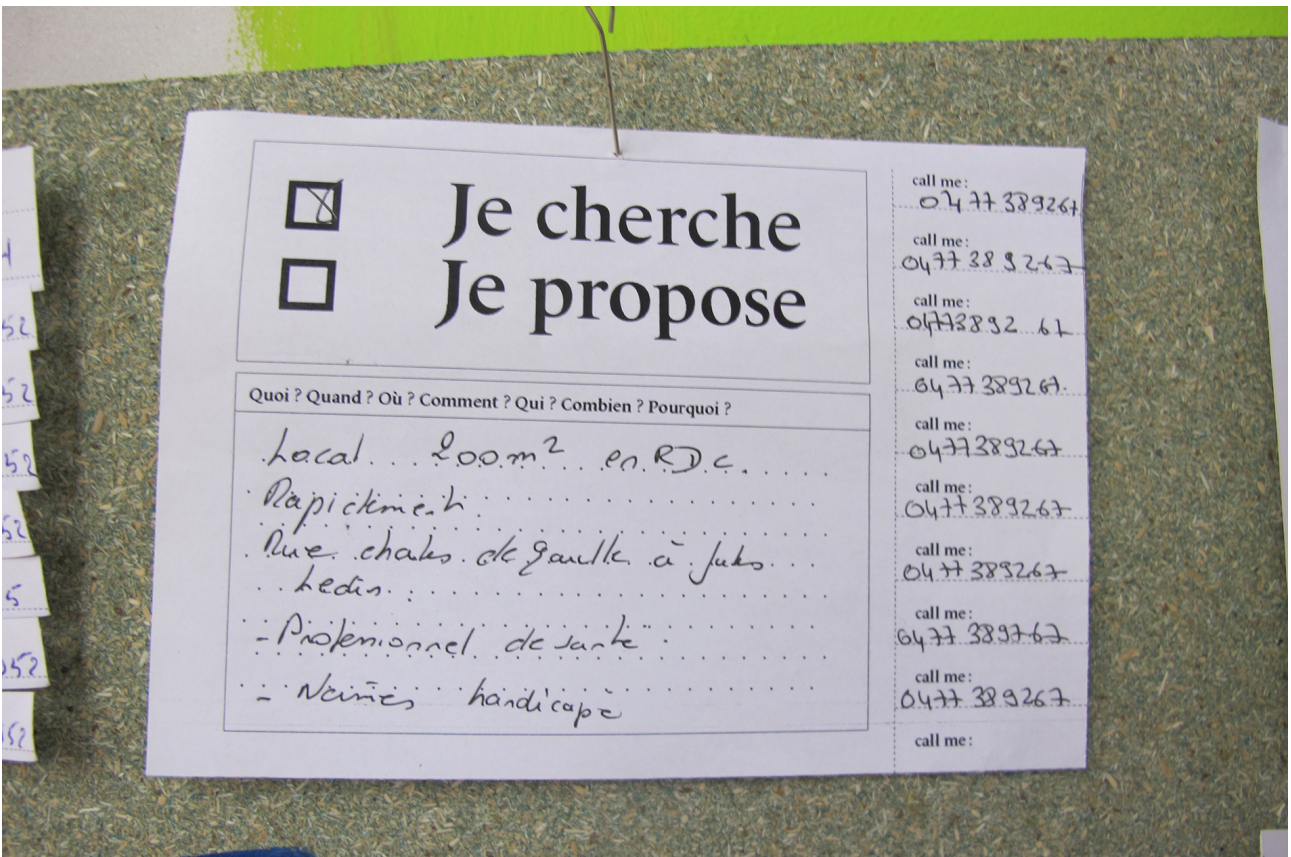 Je cherche
Je propose
Quoi ? Quand ? Où ? Comment ? Qui ? Combien ? Pourquoi ?
Local 200m² en R.D.C.
Rapidement
Rue de Gaulle à
- Professionnel de santé
- handicapé
call me :
0477389267
call me :
0477389267
call me :
0477389267
call me :
0477389267
call me :
0477389267
call me :
0477389267
call me :
0477389267
call me :
0477389267
call me :
0477389267
call me :
52
52
52
52
5
52
52